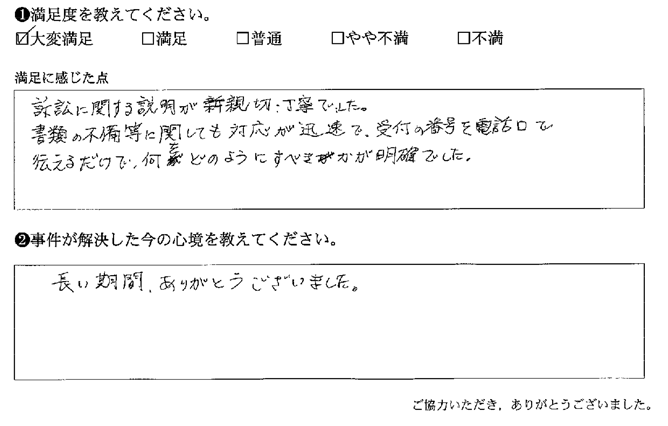 ❶満足度を教えてください。
☑大変満足 □満足 □普通 □やや不満 □不満
満足に感じた点
訴訟に関する説明が親切・丁寧でした。
書類の不備等に関しても対応が迅速で、受付の番号を電話口で
伝えるだけで、何をどのようにすべきかが明確でした。
❷事件が解決した今の心境を教えてください。
長い期間、ありがとうございました。
ご協力いただき、ありがとうございました。